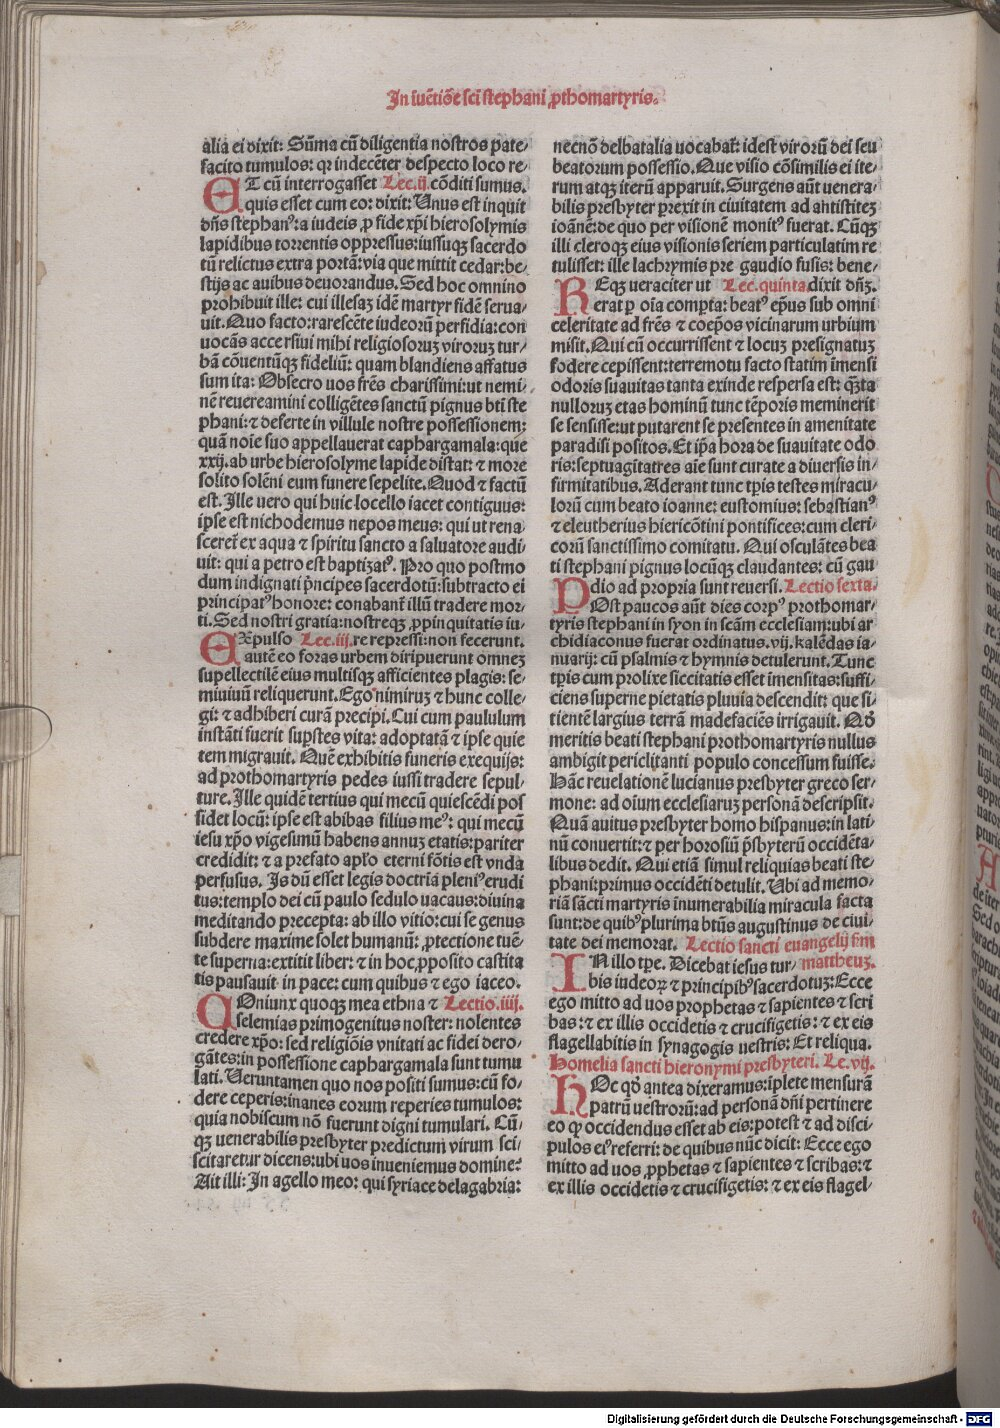 In īuētiōe sci stephani ꝓthomartyris.
alia ei dixit: Sūma cū diligentia nostros pate-
facito tumulos: qr indecēter despecto loco re-
ET cū interrogasset Lec.ij. cōditi sumus.
quis esset cum eo: dixit: Unus est inquit
dn̄s stephanꝰ: a iudeis ꝓ fide xp̄i hierosolymis
lapidibus torrentis oppressus: iussuqꝫ sacerdo
tū relictus extra portā: via que mittit cedar: be-
stijs ac auibus deuorandus. Sed hoc omnino
prohibuit ille: cui illesaꝫ idē martyr fidē serua-
uit. Quo facto: rarescēte iudeorū perfidia: con
uocās accersiui mihi religiosoruꝫ viroruꝫ tur-
bā cōuentūqꝫ fideliū: quam blandiens affatus
sum ita: Obsecro uos frēs charissimi: ut nemi-
nē reuereamini colligētes sanctū pignus bt̄i ste
phani: ⁊ deferte in villule nostre possessionem:
quā noīe suo appellauerat caphargamala: que
xxij. ab urbe hierosolyme lapide distat: ⁊ more
solito solēni eum funere sepelite. Quod ⁊ factū
est. Ille uero qui huic locello iacet contiguus:
ip̄se est nichodemus nepos meus: qui ut rena-
scereī ex aqua ⁊ spiritu sancto a saluatore audi-
uit: qui a petro est baptizatꝰ. Pro quo postmo
dum indignati p̄ncipes sacerdotū: subtracto ei
principatꝰ honore: conabant̄ illū tradere mor-
ti. Sed nostri gratia: nostreqꝫ ꝓpinquitatis iu-
EXpulso Lec.iij. re repressi: non fecerunt.
autē eo foras urbem diripuerunt omneꝫ
supellectilē eius multisqꝫ afficientes plagis: se-
miuiuū reliquerunt. Ego nimiruꝫ ⁊ hunc colle-
gi: ⁊ adhiberi curā precipi. Cui cum paululum
instāti fuerit suꝑstes vita: adoptatā ⁊ ipse quie
tem migrauit. Quē exhibitis funeris exequijs:
ad prothomartyris pedes iussi tradere sepul-
ture. Ille quidē tertius qui mecū quiescēdi pos
sidet locū: ipse est abibas filius meꝰ: qui mecū
iesu xp̄o vigesimū habens annuꝫ etatis: pariter
credidit: ⁊ a prefato apl̄o eterni fōtis est vnda
perfusus. Is dū esset legis doctria pleniꝰ erudi
tus: templo dei cū paulo sedulo uacaus: diuina
meditando precepta: ab illo vitio: cui se genus
subdere maxime solet humanū: ꝓtectione tuē-
te superna: extitit liber: ⁊ in hoc ꝓposito castita
tis pausauit in pace: cum quibus ⁊ ego iaceo.
COniunx quoqꝫ mea ethna ⁊ Lectio.iiij.
selemias primogenitus noster: nolentes
credere xp̄o: sed religiōis vnitati ac fidei dero-
gātes: in possessione caphargamala sunt tumu
lati. Ueruntamen quo nos positi sumus: cū fo-
dere ceperis: inanes eorum reperies tumulos:
quia nobiscum nō fuerunt digni tumulari. Cū-
qꝫ uenerabilis presbyter predictum virum sci-
scitaretur dicens: ubi uos inueniemus domine?
Ait illi: In agello meo: qui syriace delagabria:
necnō delbatalia uocabat̄: idest virorū dei seu
beatorum possessio. Que visio cōsimilis ei ite-
rum atqꝫ iterū apparuit. Surgens aūt uenera-
bilis presbyter prexit in ciuitatem ad antistiteꝫ
ioānē: de quo per visionē monitꝰ fuerat. Cūqꝫ
illi cleroqꝫ eius visionis seriem particulatim re
tulisset: ille lachrymis pre gaudio fusis: bene-
REqꝫ ueraciter ut Lec.quinta. dixit dn̄ꝫ.
erat ꝑ oīa comꝑta: beatꝰ ep̄us sub omni
celeritate ad frēs ⁊ coep̄os vicinarum urbium
misit. Qui cū occurrissent ⁊ locuꝫ presignatuꝫ
fodere cepissent: terremotu facto statim īmensi
odoris suauitas tanta exinde respersa est: q̄ꝫta
nulloruꝫ etas hominū tunc tēporis meminerit
se sensisse: ut putarent se presentes in amenitate
paradisi positos. Et ip̄a hora de suauitate odo
ris: septuagītatres aīe sunt curate a diuersis in-
firmitatibus. Aderant tunc tp̄is testes miracu-
lorū cum beato ioanne: eustomius: sebastianꝰ
⁊ eleutherius hiericōtini pontifices: cum cleri-
corū sanctissimo comitatu. Qui osculātes bea
ti stephani pignus locūqꝫ claudantes: cū gau
PDdio ad propria sunt reuersi. Lectio sexta.
Ost paucos aūt dies corpꝰ prothomar-
tyris stephani in syon in scām ecclesiam: ubi ar
chidiaconus fuerat ordinatus. vij. kalēdas ia-
nuarij: cū psalmis ⁊ hymnis detulerunt. Tunc
tp̄is cum prolixe siccitatis esset īmensitas: suffi-
ciens superne pietatis pluuia descendit: que si-
tientē largius terrā madefaciēs irrigauit. Nā
meritis beati stephani prothomartyris nullus
ambigit periclitanti populo concessum fuisse.
Hāc reuelationē lucianus presbyter greco ser-
mone: ad oīum ecclesiaruꝫ personā descripsit.
Quā auitus presbyter homo hispanus: in lati
nū conuertit: ⁊ per horosiū p̄sbyterū occidēta-
libus dedit. Qui etiā simul reliquias beati ste-
phani: primus occidēti detulit. Ubi ad memo-
riā sācti martyris inumerabilia miracula facta
sunt: de quibꝰ plurima bt̄us augustinus de ciui-
tate dei memorat. Lectio sancti euangelij s̄m
IN illo tp̄e. Dicebat iesus tur- mattheuꝫ.
bis iudeoꝝ ⁊ principibꝰ sacerdotuꝫ: Ecce
ego mitto ad uos prophetas ⁊ sapientes ⁊ scri
bas: ⁊ ex illis occidetis ⁊ crucifigetis: ⁊ ex eis
flagellabitis in synagogis uestris: Et reliqua.
Homelia sancti hieronymi presbyteri. Le.vij.
HOc qd̄ antea dixeramus: īplete mensurā
patrū uestrorū: ad personā dn̄i pertinere
eo ꝙ occidendus esset ab eis: potest ⁊ ad disci-
pulos eiꝰ referri: de quibus nūc dicit: Ecce ego
mitto ad uos ꝓphetas ⁊ sapientes ⁊ scribas: ⁊
ex illis occidetis ⁊ crucifigetis: ⁊ ex eis flagel-
Digitalisierung gefördert durch die Deutsche Forschungsgemeinschaft - DFG